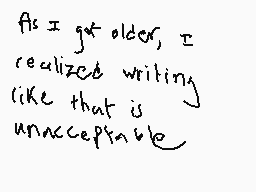 As I got older, I
realized writing
like that is
unacceptable